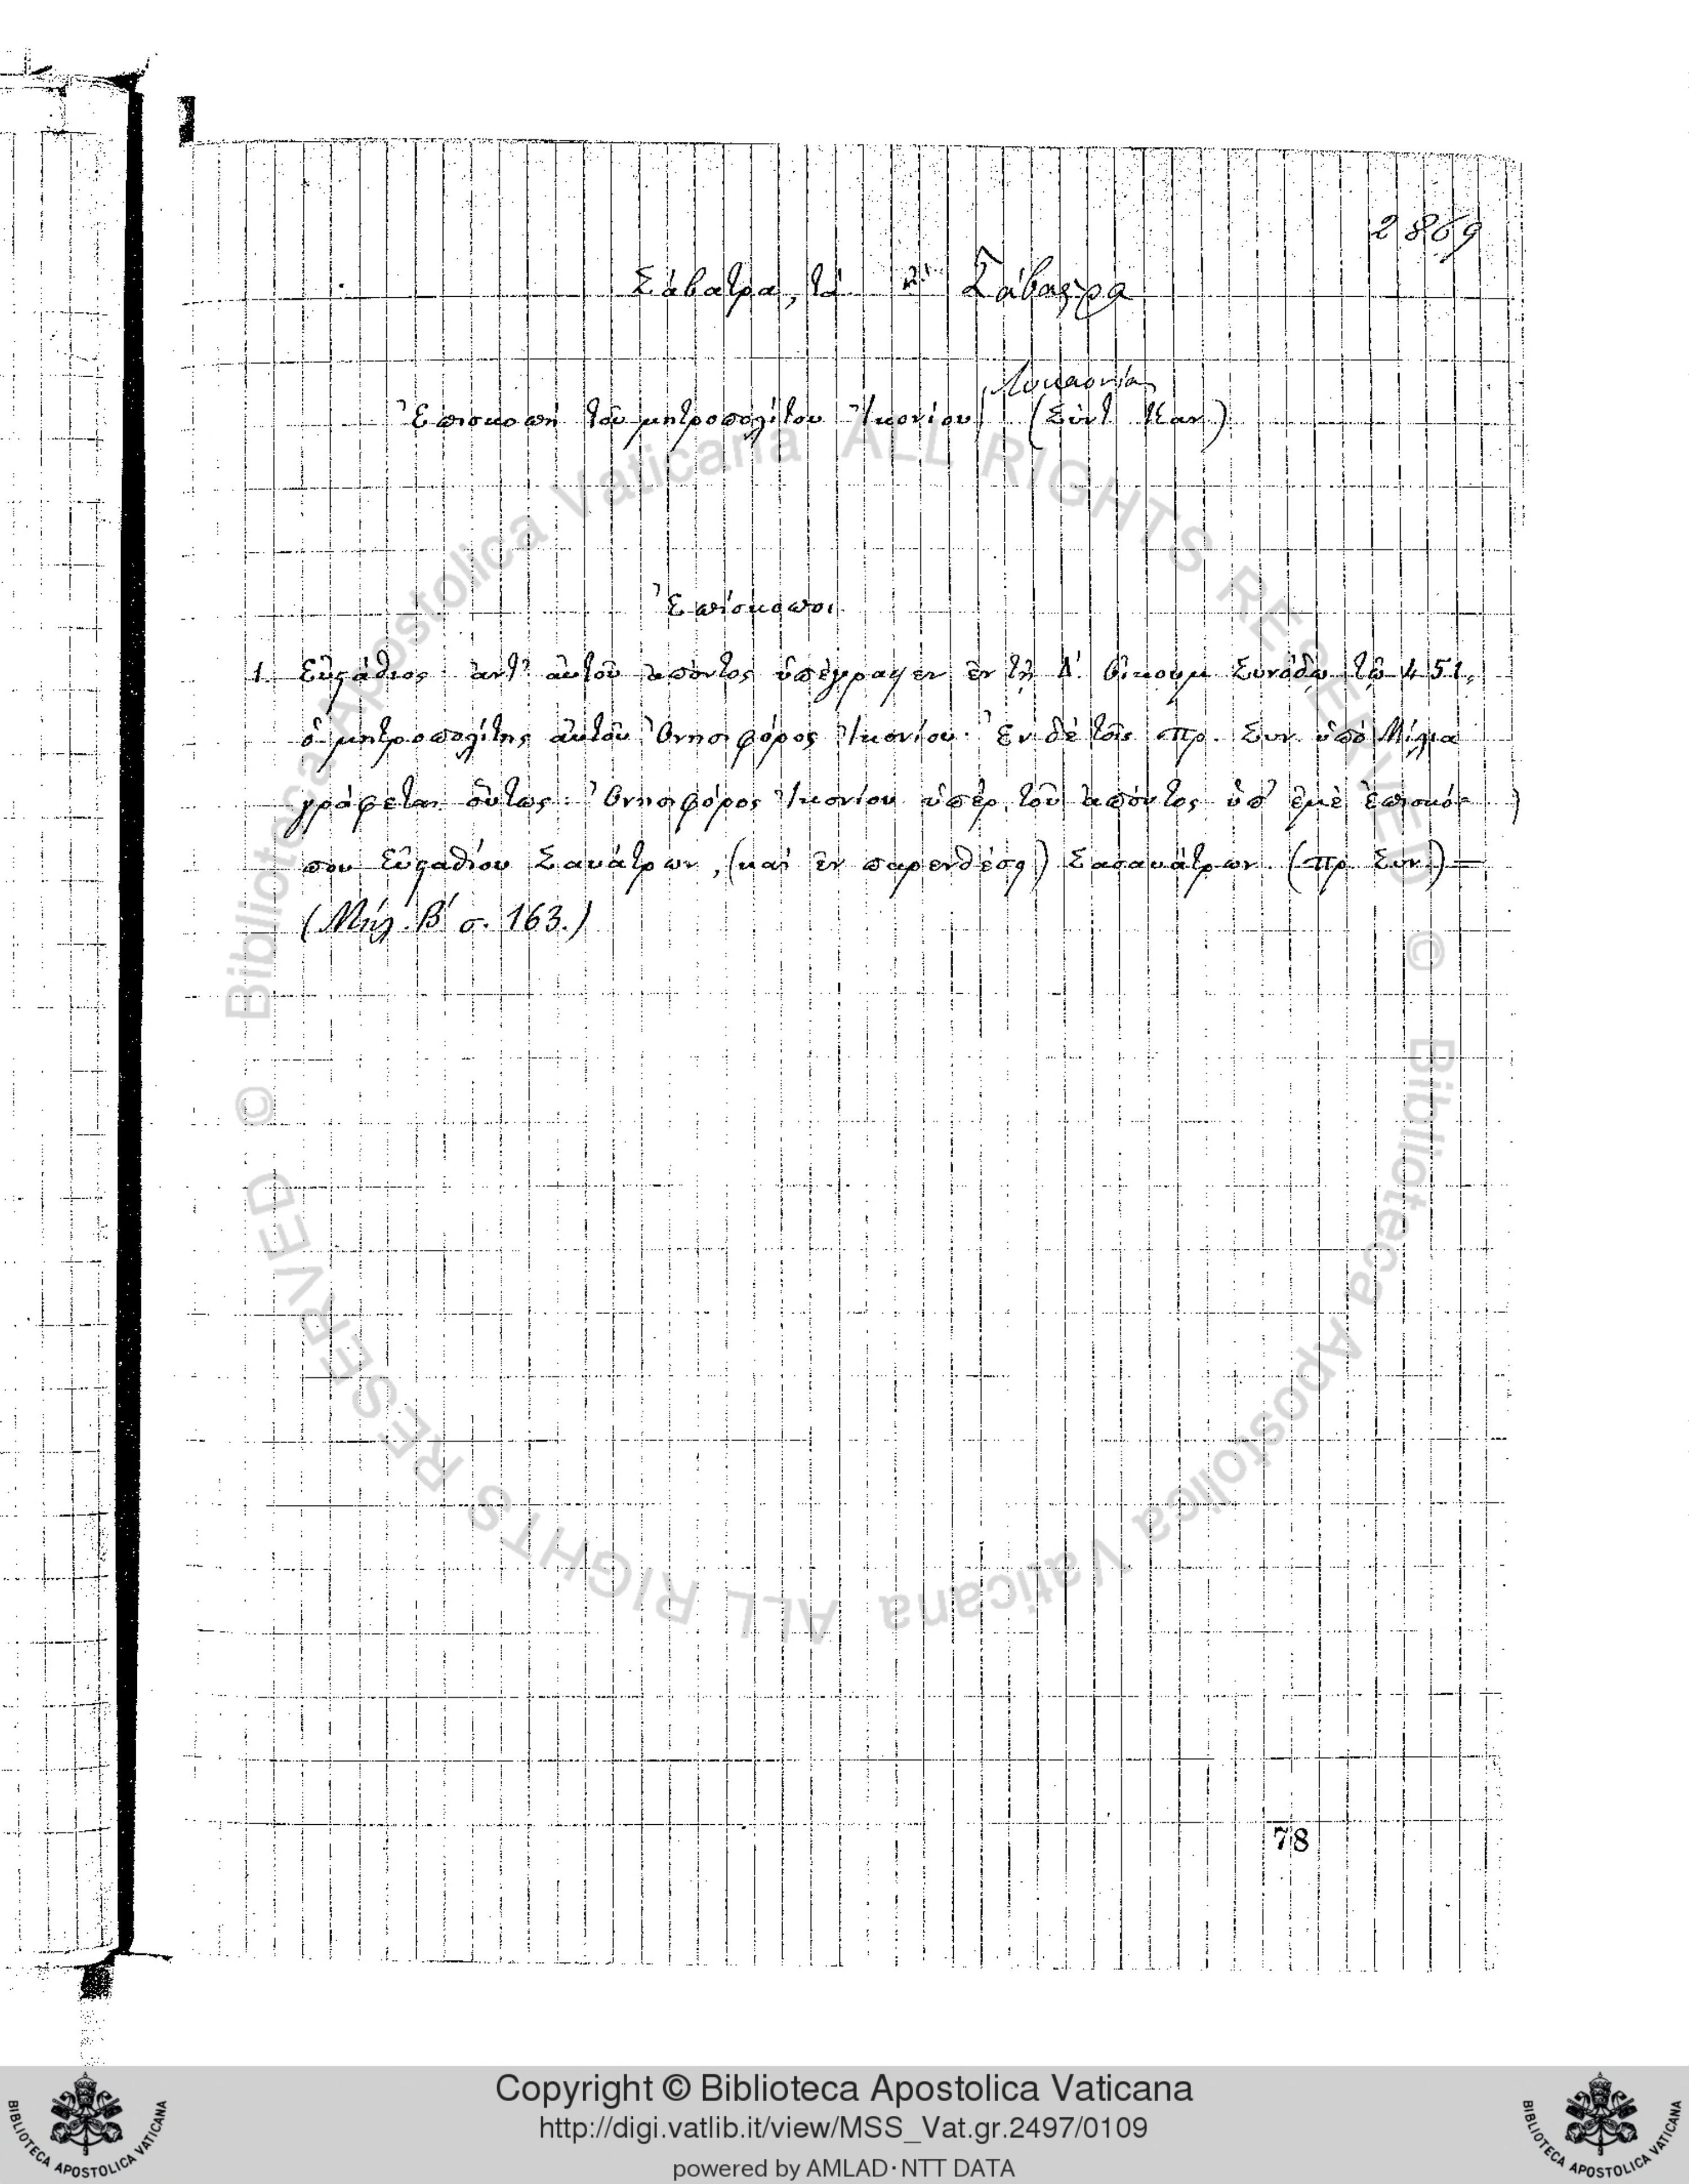 2869
Σάβατρα, τά ἢ Σάβαστρα
Λυκαονία
Ἐπισκοπὴ τοῦ μητροπολίτου Ἰκονίου (Σύντ. Καν.)
Ἐπίσκοποι
1. Εὐστάθιος· ἀντ' αὐτοῦ ἀπόντος ὑπέγραψεν ἐν τῇ Δ'. Οἰκουμ Συνόδῳ τῷ 451,
ὁ μητροπολίτης αὐτοῦ Ὀνησιφόρος Ἰκονίου· Ἐν δὲ τοῖς πρ. Συν. ὑπὸ Μίλια
γράφεται οὕτως: Ὀνησιφόρος Ἰκονίου ὑπὲρ τοῦ ἀπόντος ὑπ' ἐμὲ ἐπισκό-
που Εὐσταθίου Σαυάτρων, (καὶ ἐν παρενθέσῃ) Σασαυάτρων (πρ. Συν.) —
(Μηλ. Β' σ. 163.)
78
© Biblioteca Apostolica Vaticana ALL RIGHTS RESERVED
© Biblioteca Apostolica Vaticana ALL RIGHTS RESERVED
BIBLIOTECA APOSTOLICA VATICANA
Copyright © Biblioteca Apostolica Vaticana
http://digi.vatlib.it/view/MSS_Vat.gr.2497/0109
powered by AMLAD·NTT DATA
BIBLIOTECA APOSTOLICA VATICANA